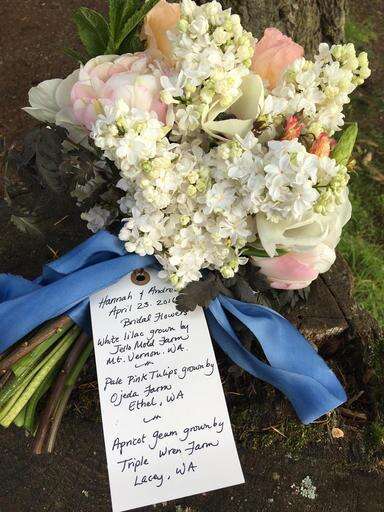 Hannah & Andrew
April 23. 2016
Bridal Flowers
White lilac grown by
Jello Mold Farm
Mt. Vernon. WA.
Pale Pink Tulips grown by
Ojeda Farm
Ethel, WA
Apricot Geum grown by
Triple Wren Farm
Lacey, WA